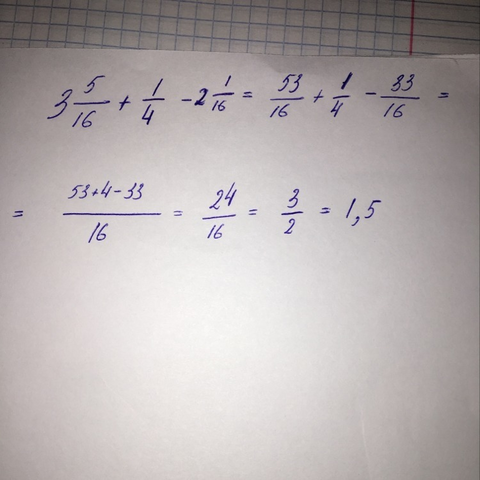 3 5/16 + 1/4 - 2 1/16 = 53/16 + 1/4 - 33/16 =
= 53+4-33/16 = 24/16 = 3/2 = 1,5